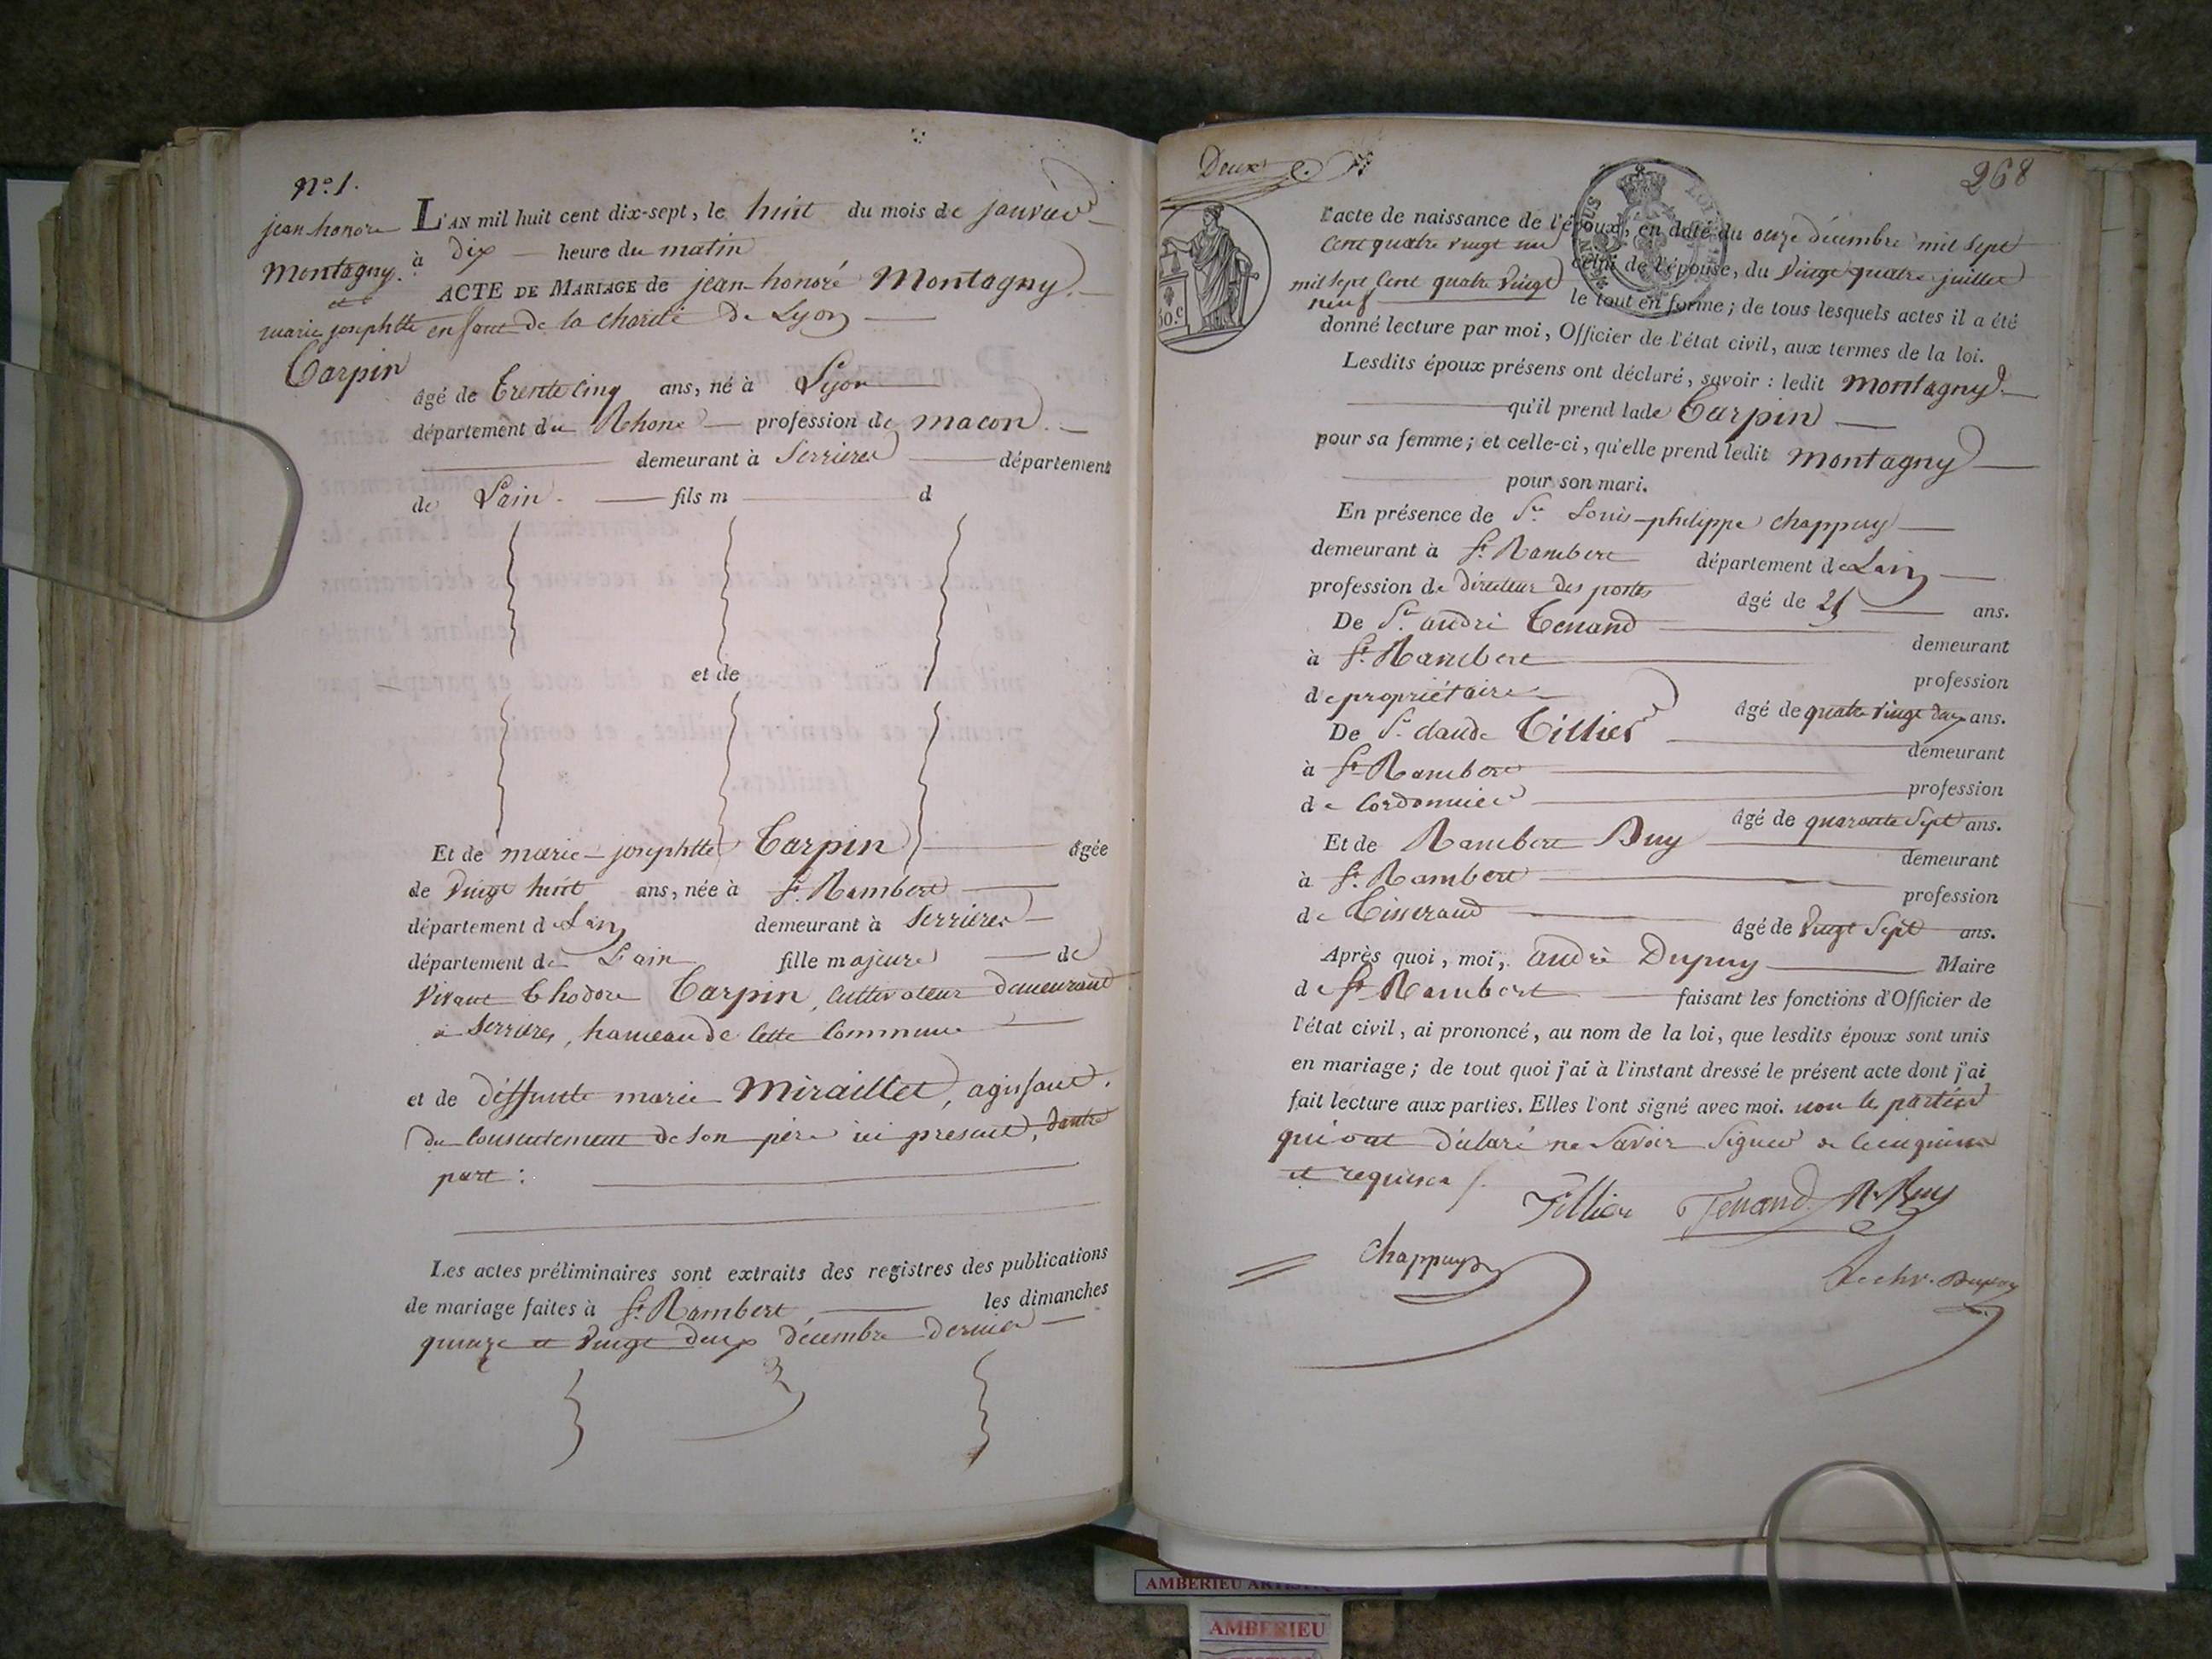 n.º 1.
jean honoré
Montagny.
et
marie josephtte
Carpin
L'AN mil huit cent dix-sept, le huit du mois de janvier
à dix heure du matin
ACTE DE MARIAGE de jean-honoré Montagny.
enfant de la charité de Lyon
âgé de trente cinq ans, né à Lyon
département du Rhone profession de macon.
demeurant à Serrieres département
de Lain. fils m d
et de
Et de marie-josephtte Carpin âgée
de vingt huit ans, née à St. Rambert
département de Lain demeurant à Serrieres
département de Lain fille majeure de
vivant thodore Carpin, cultivateur demeurant
à Serrieres, hameau de cette commune
et de deffunte marie Miraillet, agissant.
du consentement de son père ici présent, d'autre
part :
Les actes préliminaires sont extraits des registres des publications
de mariage faites à St. Rambert, les dimanches
quinze et vingt deux décembre dernier
Deux
268
l'acte de naissance de l'époux, en date du onze décembre mil sept
cent quatre vingt un celui de l'épouse, du vingt quatre juillet
mil sept cent quatre vingt
neuf le tout en forme; de tous lesquels actes il a été
donné lecture par moi, Officier de l'état civil, aux termes de la loi.
Lesdits époux présens ont déclaré, savoir : ledit Montagny
qu'il prend lade Carpin
pour sa femme; et celle-ci, qu'elle prend ledit Montagny
pour son mari.
En présence de Sr. Louis-philippe chappuy
demeurant à St. Rambert département de Lain
profession de directeur des postes âgé de 25 ans.
De Sr. andré Tenand demeurant
à St. Rambert profession
de propriétaire âgé de quatre vingt deux ans.
De Sr. claude Tillier demeurant
à St. Rambert profession
de Cordonnier âgé de quarante sept ans.
Et de Rambert Ruy demeurant
à St. Rambert profession
de Tisserand âgé de vingt sept ans.
Après quoi, moi, andré Dupuy Maire
de St. Rambert faisant les fonctions d'Officier de
l'état civil, ai prononcé, au nom de la loi, que lesdits époux sont unis
en mariage; de tout quoi j'ai à l'instant dressé le présent acte dont j'ai
fait lecture aux parties. Elles l'ont signé avec moi. non les parties
qui ont déclaré ne savoir signer de ce enquises
et requises /.
Tillier Tenand R. Ruy
Chappuy
Le chr. Dupuy
50.c
AMBERIEU
AMBERIEU